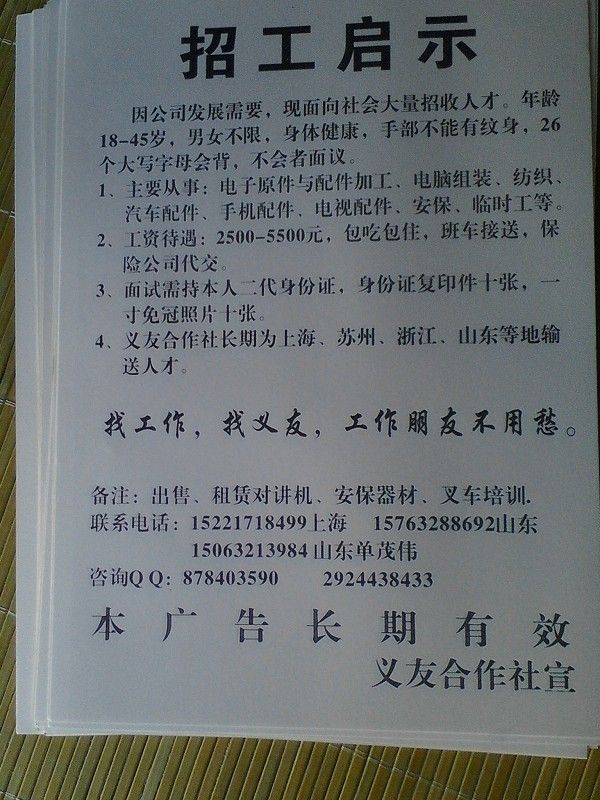 招工启示
因公司发展需要，现面向社会大量招收人才。年龄
18-45岁，男女不限，身体健康，手部不能有纹身，26
个大写字母会背，不会者面议。
1、主要从事：电子原件与配件加工、电脑组装、纺织、
汽车配件、手机配件、电视配件、安保、临时工等。
2、工资待遇：2500-5500元，包吃包住，班车接送，保
险公司代交。
3、面试需持本人二代身份证，身份证复印件十张，一
寸免冠照片十张。
4、义友合作社长期为上海、苏州、浙江、山东等地输
送人才。
找工作，找义友，工作朋友不用愁。
备注：出售、租赁对讲机、安保器材、叉车培训.
联系电话：15221718499上海 15763288692山东
15063213984山东单茂伟
咨询QQ：878403590 2924438433
本广告长期有效
义友合作社宣